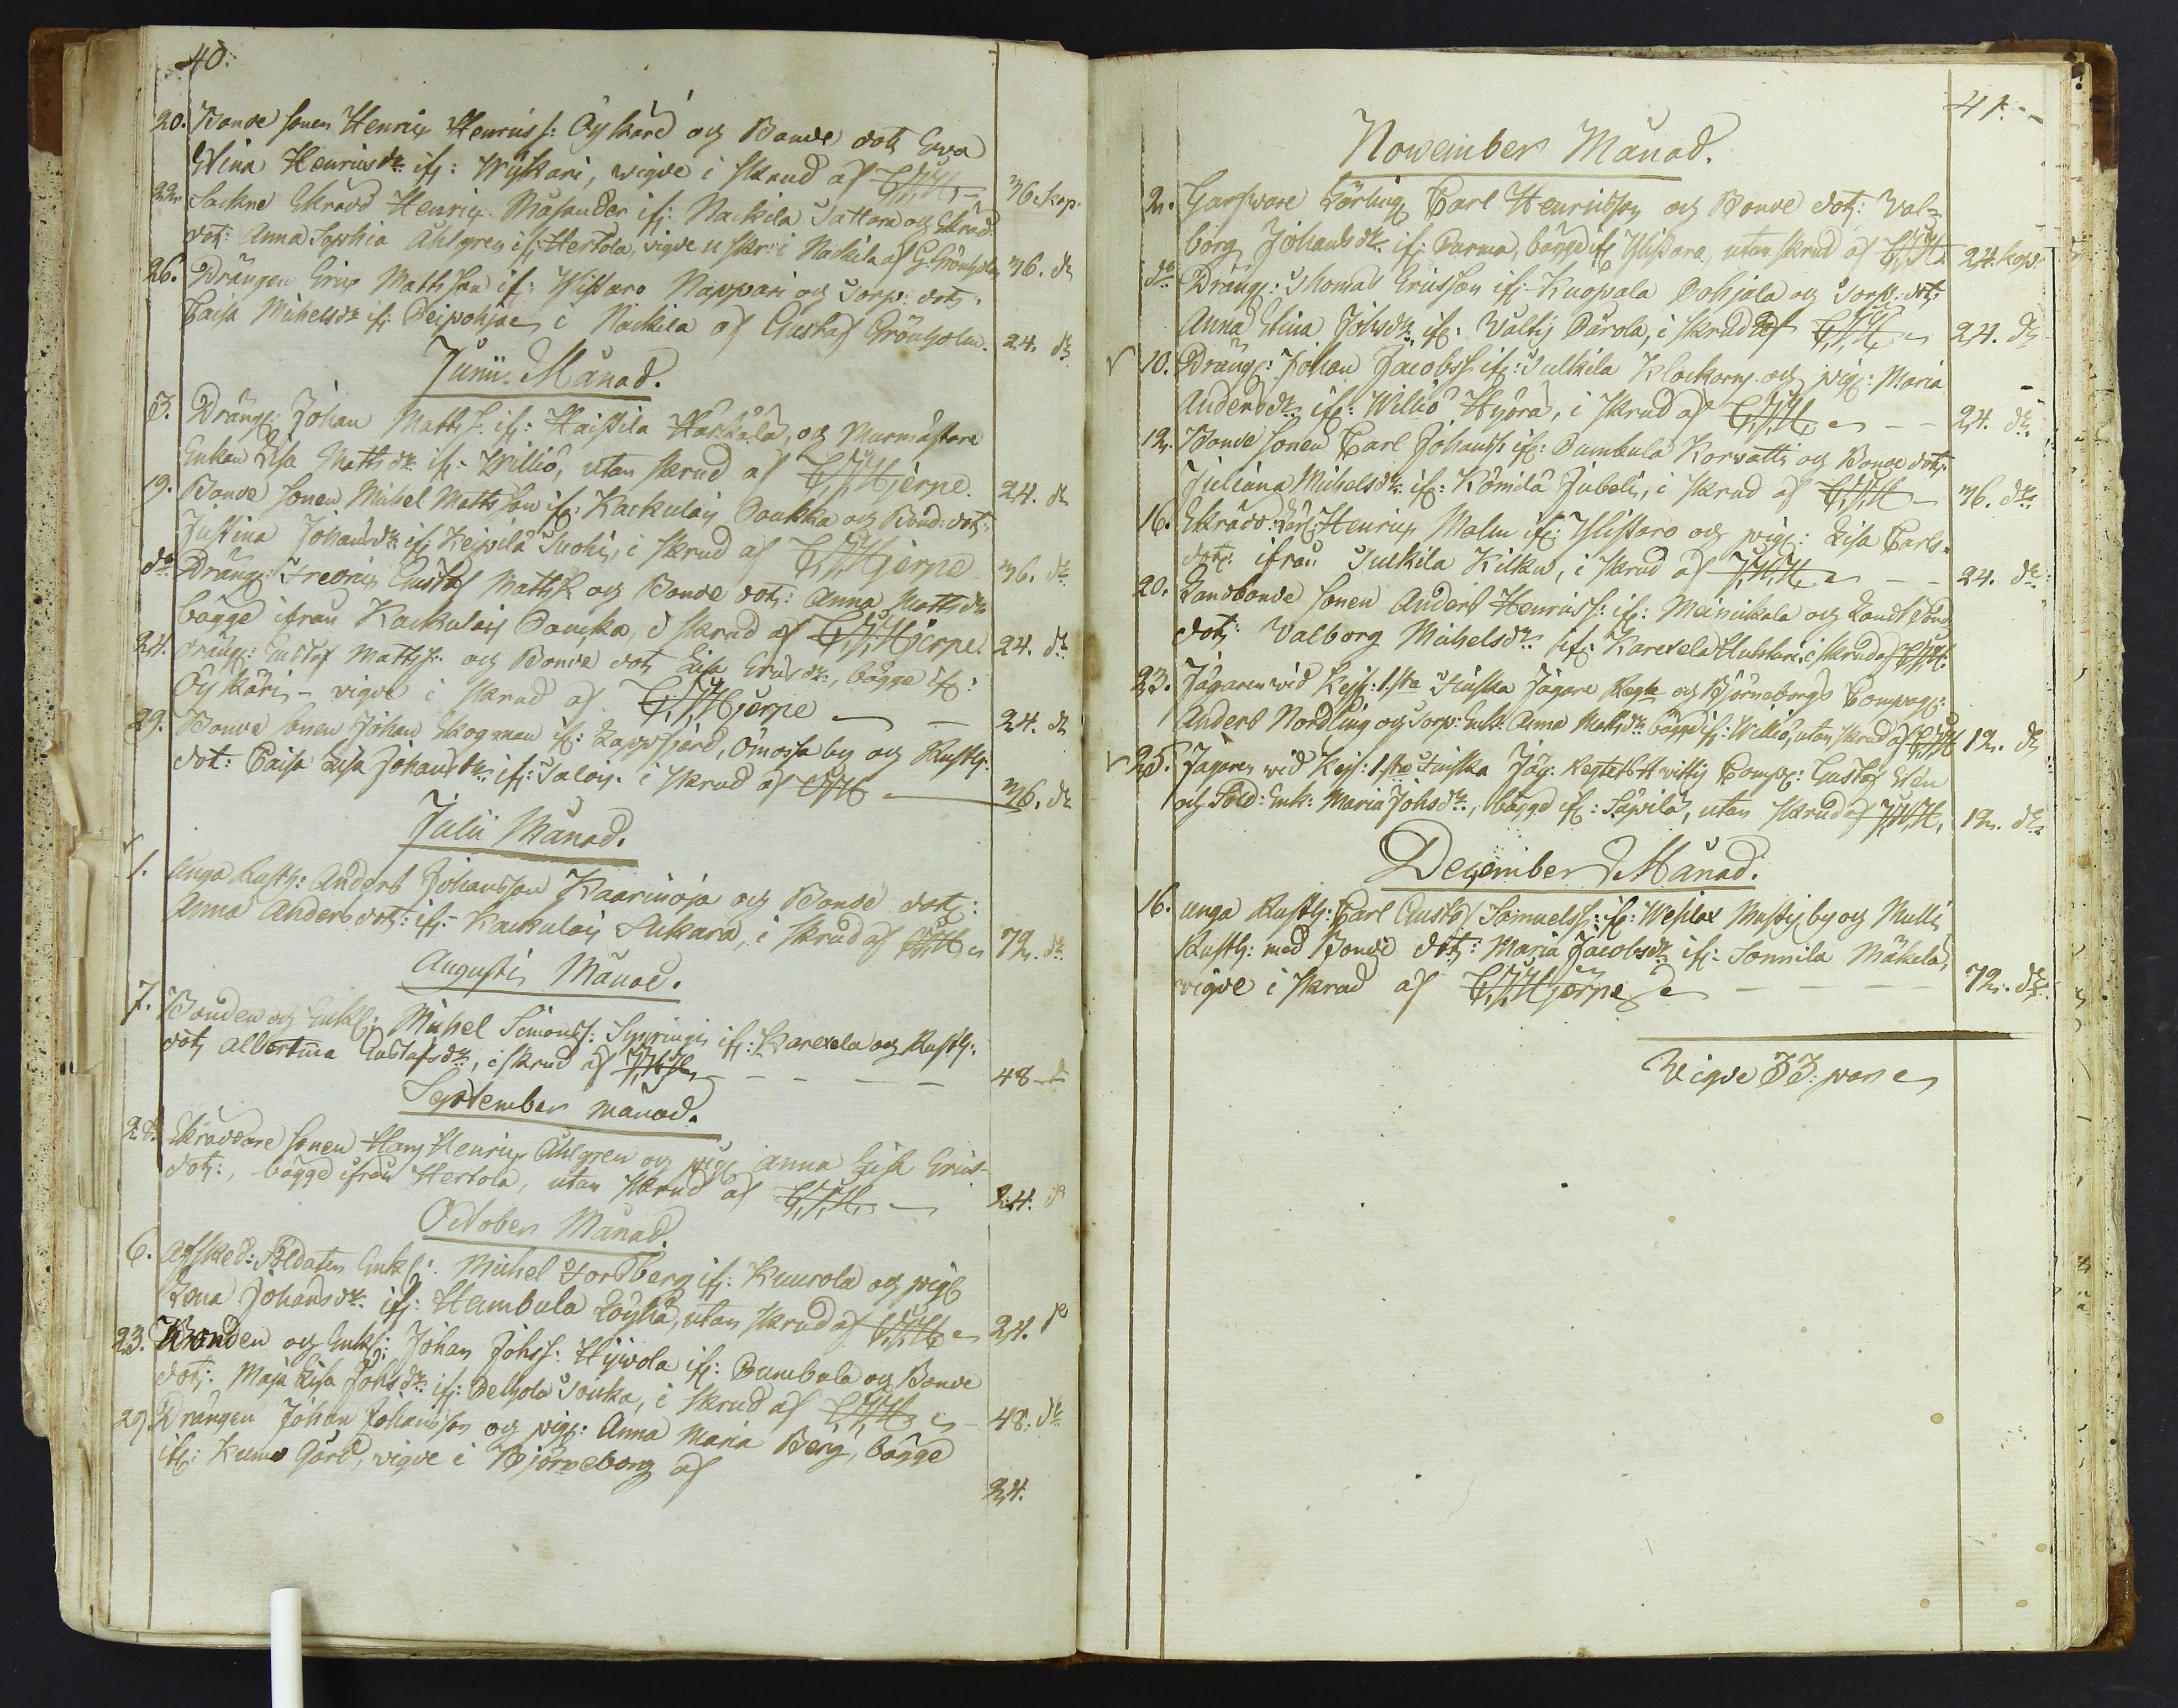 40:
20. Bonde sonen Henric Henricss: Öyskäri och Bonde dott. Ewa
Stina Henricsdr ifr: Wyskari, vigde i skrud af C.J.H. 36. kop.
22. Sockne Skrädd Henric Masander ifr: Nackila Tattara och Skrädd
dott: Anna Sophia Ahlgren ifr. Hertola, vigde u skr: i Nackila af G. Grönholm 36. d:o
26. Drängen Eric Mattsson if: Ylistaro Nappari och Torp: dott:
Caisa Michelsdr if. Peipohja, i Nackila af Gustaf Grönholm. 24. d:o
Junii Månad.
3. Dräng: Johan Matts s: if: Haistila Härkälä, och Murmästare
Enkan Lisa Mattsdr if: Williö, utan skrud af C.J. Hjerpe. 24. d:o
19. Bonde sonen Michel Mattsson if: Kackulais Paukka och Bond: dott:
Justina Johansdr if: Leipilä Suohi, i skrud af C.J. Hjerpe 36. d:o
d:o Dräng: Fredric Gustaf Mattss. och Bonde dott: Anna Mattsdr
bägge ifrån Kackulais Pancka, i skrud af C.J. Hjerpe. 24. d:o
24. dräng: Gustaf Mattss: och Bonde dott Lisa Ericsdr, bägge if:
Öyskäri - vigde i skrud af C.J. Hjerpe 24. d:o
29. Bonde sonen Johan Skogman if: Lappfjärd, Ömossa by och Rusth:
dot: Caisa Lisa Johansdr if: Salois. i skrud af C.J.H. 36. d:o
Julii Månad.
1. unga Rusth: Anders Johansson Kaarinoja och Bonde dott:
Anna Andersdott: if: Kackulais Sukara, i skrud af C.J.H. 72. d:o
Augusti Månad.
7. Bonden och Enkl: Michel Simonss: Sypringi if: Karexela och Rusth:
dott Albertina Gustafsdr, i skrud af J.W.H. 48 d:o
September månad.
24. Skräddare sonen Hans Henric Ahlgren och pig. Anna Lisa Erics-
dott:, bägge ifrån Hertola, utan skrud af C.J.H. 24. d:o
October Månad.
6. Afsked: Soldaten Enkl: Michel Fordberg if: Kuurola och pig:
Lena Johansdr if: Hambula Löyhä, utan skrud af C.J.H. 24. d:o
23. Bonden och Enkl: Johan Johss: Hywola if: Pumbula och Bonde
dott: Maja Lisa Johsdr if: Pelhola Souka, i skrud af C.J.H. 48. d:o
29. Drängen Johan Johansson och pig: Anna Maria Berg, bägge
if: Kumo Gård, vigde i Björneborg af
24.
41.
November Månad.
2. Garfware Lärling Carl Henricsson och Bonde dott: Val=
borg Johansdr if. Parma, bägge if. Ylistaro, utan skrud af C.J.H. 24. kop:
d:o Dräng: Thomas Ericsson if: Kuopala Pohjala och Torp: dott:
Anna Stina Johsdr if: Wältis Pärola, i skrud af C.J.H. 24. d:o
10. Dräng: Johan Jacobss if: Sulkila Klockars och pig: Maria
Andersdr if: Williö Hyöra, i skrud af C.J.H. 24. d:o
12. Bonde sonen Carl Johanss if: Pumbula Korwatti och Bonde dott:
Juliana Michelsdr if: Kömilä Jubeli, i skrud af C.J.H. 36. d:o
16. Skrädd: Lärl: Henric Malm if: Ylistaro och pig: Lisa Carls-
dott: ifrån Sulkila Kilku, i skrud af J.W.H. 24. d:o
20. Landbonde sonen Anders Henricss: if: Meinikala och Landbond
dott: Valborg Michelsdr if: Karexela Huhtari, i skrud af C.J.H.
23. Jägaren wid Kejs: 1.sta Finska Jägare Regte och Björneborgs Compagi:
Anders Nordling och Torp: Enk: Anna Matsdr bägge if: Williö, utan skrud af C.J.H. 12. d:o
25. Jägaren wid Kejs: 1.sta Finska Jäg: Regtets Hwittis Comp: Gustaf Sten
och Sold: Enk: Maria Johsdr, bägge if: Säpilä, utan skrud af J.W.H. 12. d:o
December Månad.
16. unga Rusth: Carl Gustaf Samuelss: if: Westlax Mustis by och Mulli
Rusth: med Bonde dott: Maria Jacobsdr if: Sonnila Mäkelä,
vigde i skrud af C.J. Hjerpe 72. d:o
Vigde 33. par